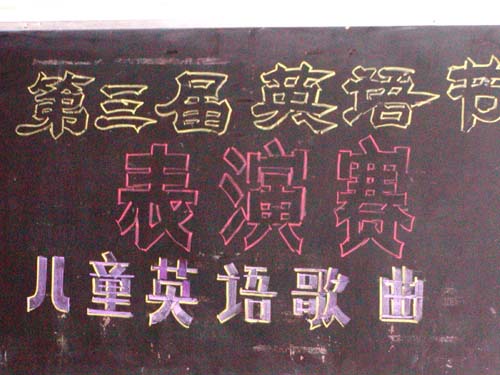 第三届英语节
表演赛
儿童英语歌曲